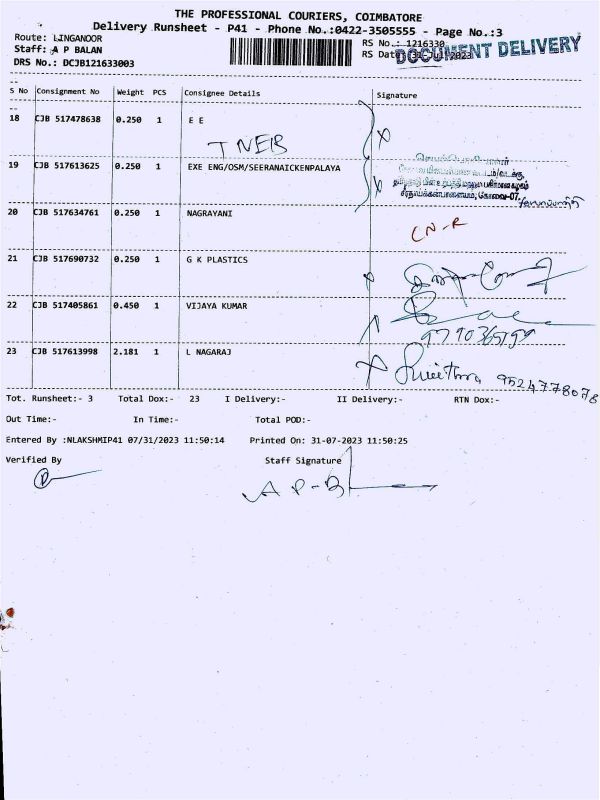 THE PROFESSIONAL COURIERS, COIMBATORE
Delivery Runsheet - P41 - Phone No.:0422-3505555 - Page No.:3
Route: LINGANOOR
RS No.: 1216330
Staff: A P BALAN
RS Date 31-Jul-2023
DOCUMENT DELIVERY
DRS No.: DCJB121633003
S No Consignment No Weight PCS Consignee Details Signature
18 CJB 517478638 0.250 1 E E
TNEB
19 CJB 517613625 0.250 1 EXE ENG/OSM/SEERANAICKENPALAYA
20 CJB 517634761 0.250 1 NAGRAYANI
CN-R
21 CJB 517690732 0.250 1 G K PLASTICS
22 CJB 517405861 0.450 1 VIJAYA KUMAR
23 CJB 517613998 2.181 1 L NAGARAJ
9524778078
Tot. Runsheet:- 3 Total Dox:- 23 I Delivery:- II Delivery:- RTN Dox:-
Out Time:- In Time:- Total POD:-
Entered By :NLAKSHMIP41 07/31/2023 11:50:14 Printed On: 31-07-2023 11:50:25
Verified By Staff Signature
A P-B